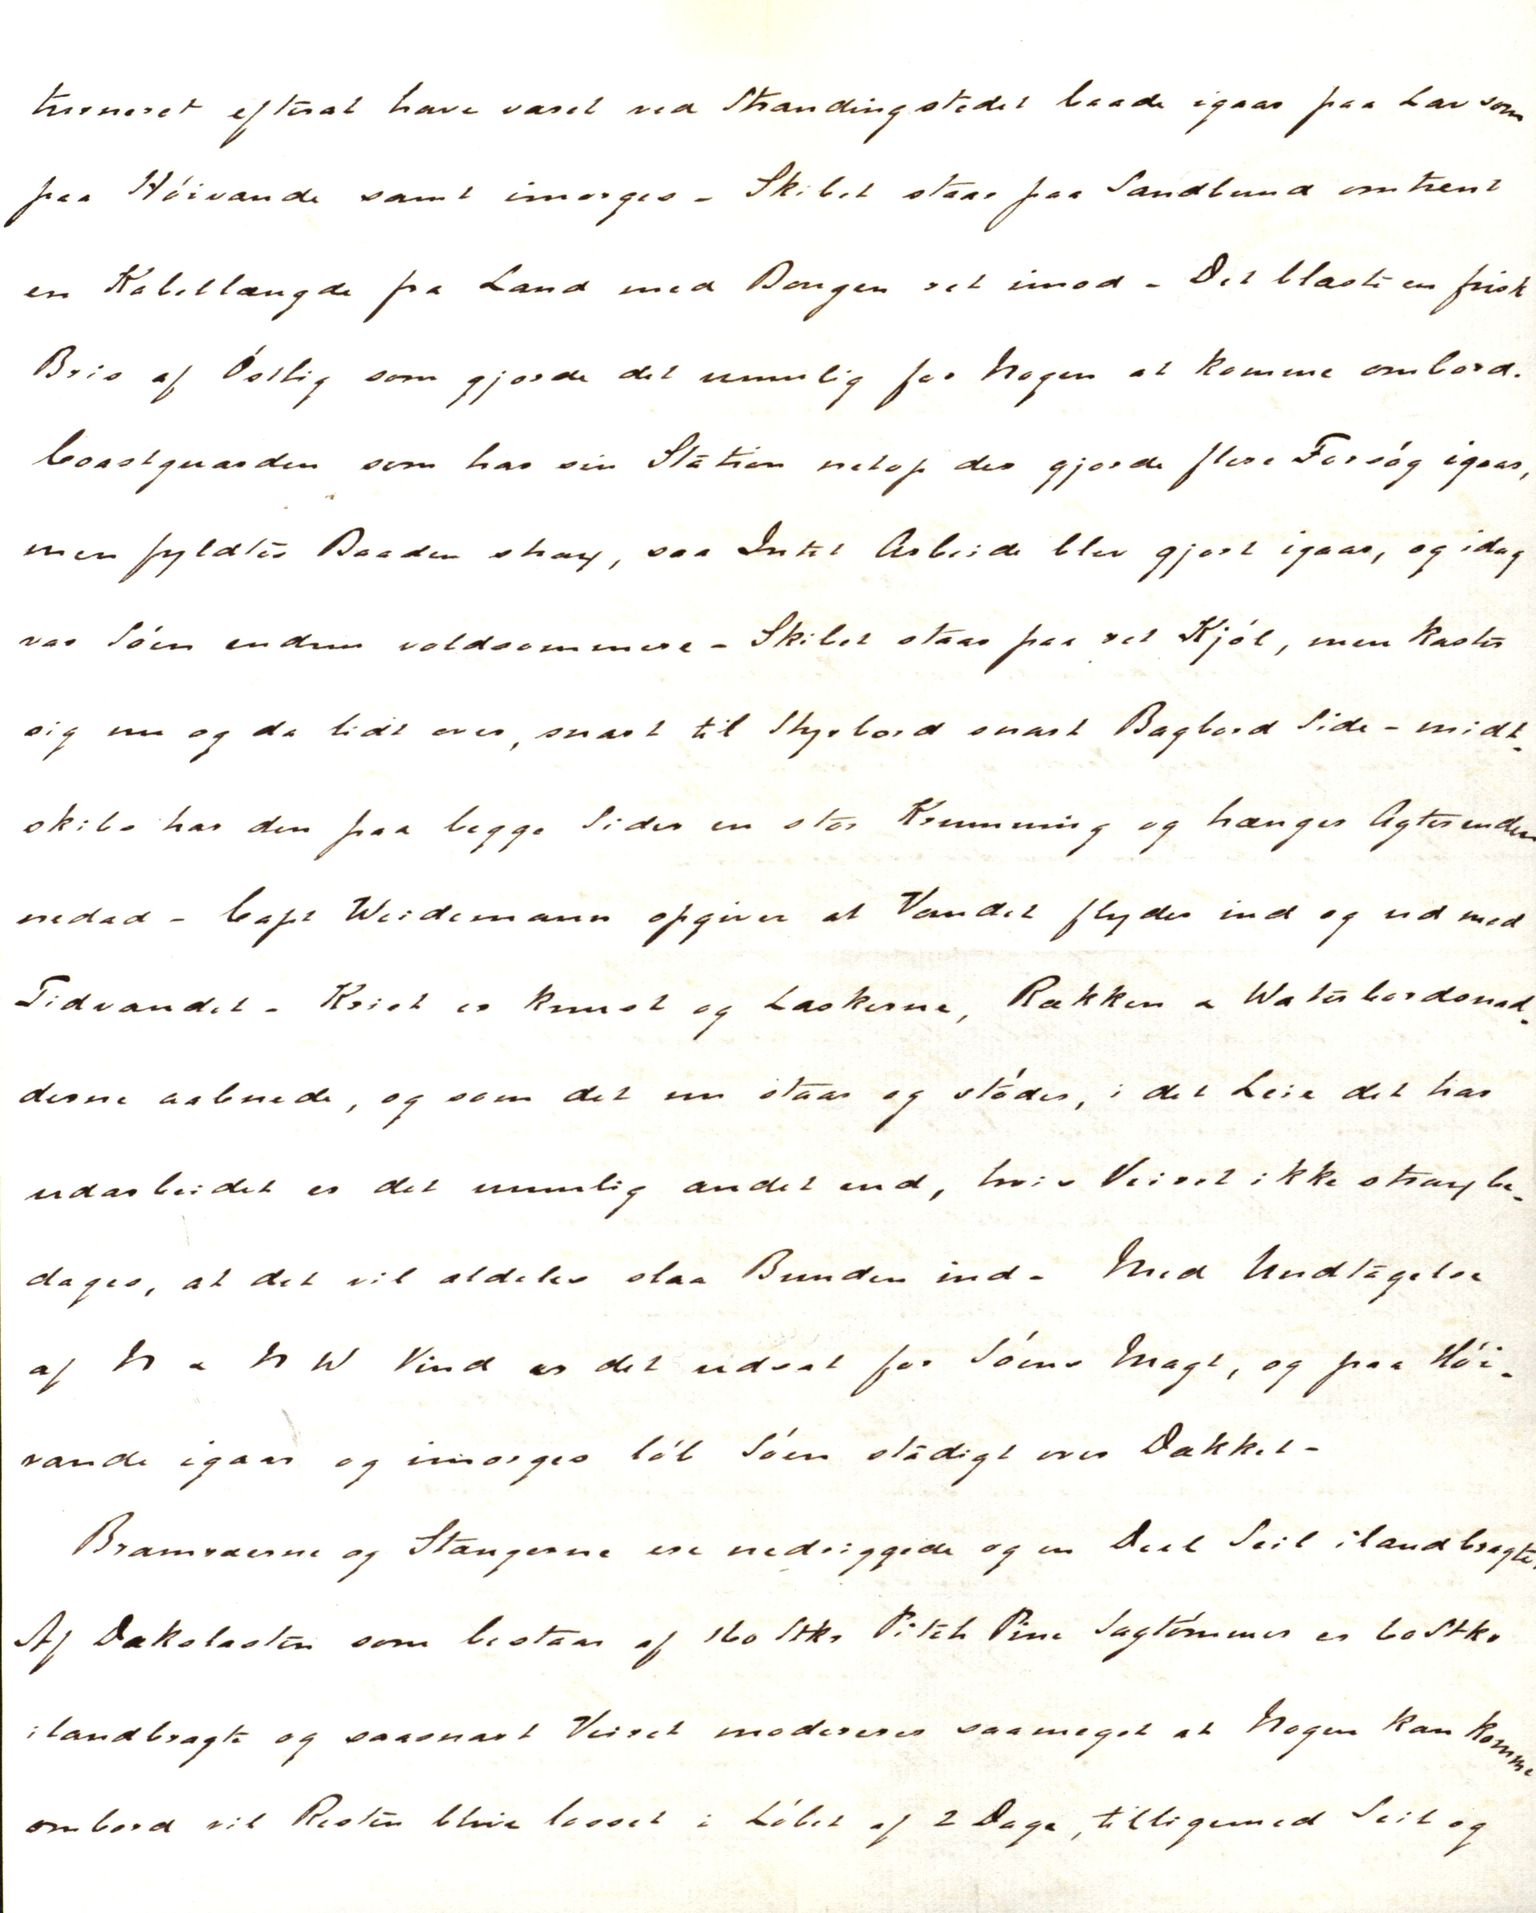 turneret efterat have været ved Strandingstedet baade igaar paa Lav som
paa Höivande samt imorges - Skibet staar paa Sandbund omtrent
en Kabellængde fra Land med Bougen ret imod - Det blæste en frisk
Bris af Östlig som gjorde det umulig for Nogen at komme ombord.
Coastguarden som har sin Station netop der gjorde flere Forsög igaar,
men fyldtes Baaden strax, saa Intet Arbeide blev gjort igaar, og idag
var Söen endnu voldsommere - Skibet staar paa ret Kjöl, men kaster
sig nu og da lidt over, snart til Styrbord snart Bagbord Side - midt-
skibs har den paa begge Sider en stor Krumning og hænger Agterenden
nedad - Capt Weidemann opgiver at Vandet flyder ind og ud med
Tidvandet - Kriet er knust og Laskerne, Rækken & Waterbordsnad-
derne aabnede, og som det nu staar og stöder, i det Leie det har
udarbeidet er det umulig andet end, hvis Veiret ikke strax be-
dages, at det vil aldeles slaa Bunden ind - Med Undtagelse
af N & NW Vind er det udsat for Söens Magt, og paa Höi-
vande igaar og imorges löb Söen stadigt over Dækket -
Bramraerne og Stængerne ere nedriggede og en Deel Seil ilandbragte.
Af Dækslasten som bestaar af 160 Stks Pitch Pine Sagtömmer er 60 Stks
ilandbragte og saasnart Veiret modereres saameget at Nogen kan komme
ombord vil Resten blive losset i Löbet af 2 Dage, tilligemed Seil og